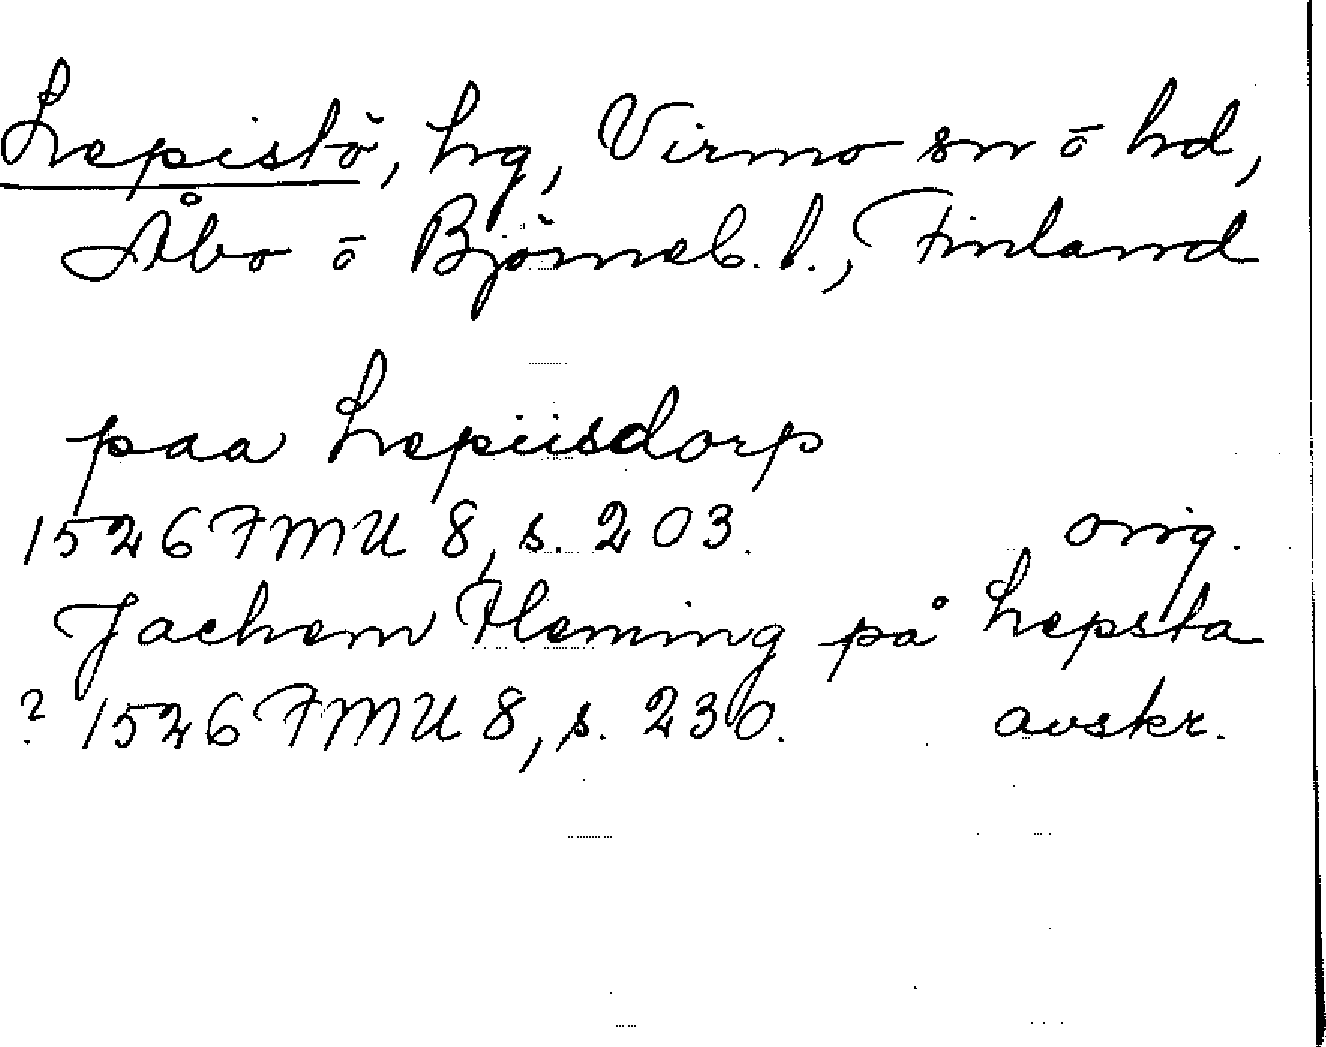 Lepistö, hg, Virmo sn ō hd,
Åbo ō Björneb. l., Finland
paa Lepiisdorp
1526 FMU 8, s. 203. orig.
Jachem Fleming på Lepsta
? 1526 FMU 8, s. 230. avskr.